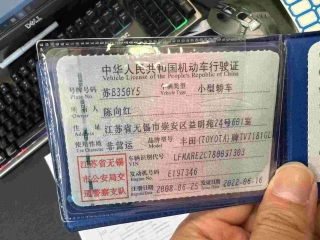 中华人民共和国机动车行驶证
Vehicle License of the People's Republic of China
号牌号码 苏B350Y5 车辆类型 小型轿车
Plate No. Vehicle Type
所有人 陈向红
Owner
住址 江苏省无锡市崇安区益明苑24号601室
Address
使用性质 非营运 品牌型号 丰田(TOYOTA)牌
Use Character
江苏省无锡市公安局交通警察支队
车辆识别代号
VIN
发动机号码 E197346
注册日期 2008-06-25 发证日期 2022-06-16